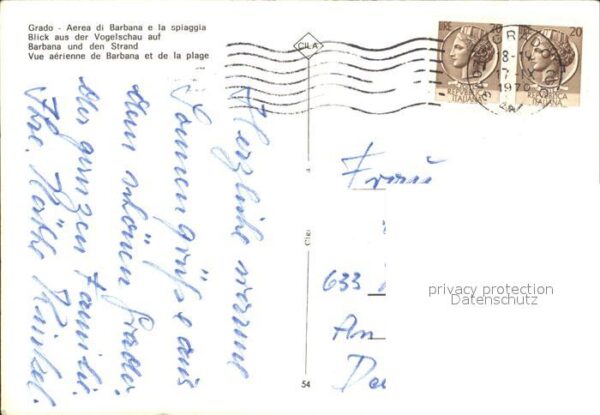 Grado - Aerea di Barbana e la spiaggia
Blick aus der Vogelschau auf
Barbana und den Strand
Vue aérienne de Barbana et de la plage
CILA
LIRE 20
REPUBBLICA
ITALIANA
20
REPUBBLICA
ITALIANA
1970
Herzliche warme
Sonnengrüße aus
dem schönen Grado
der ganzen Familie
Ihre Käthe
Frau
633
An
privacy protection
Datenschutz
54